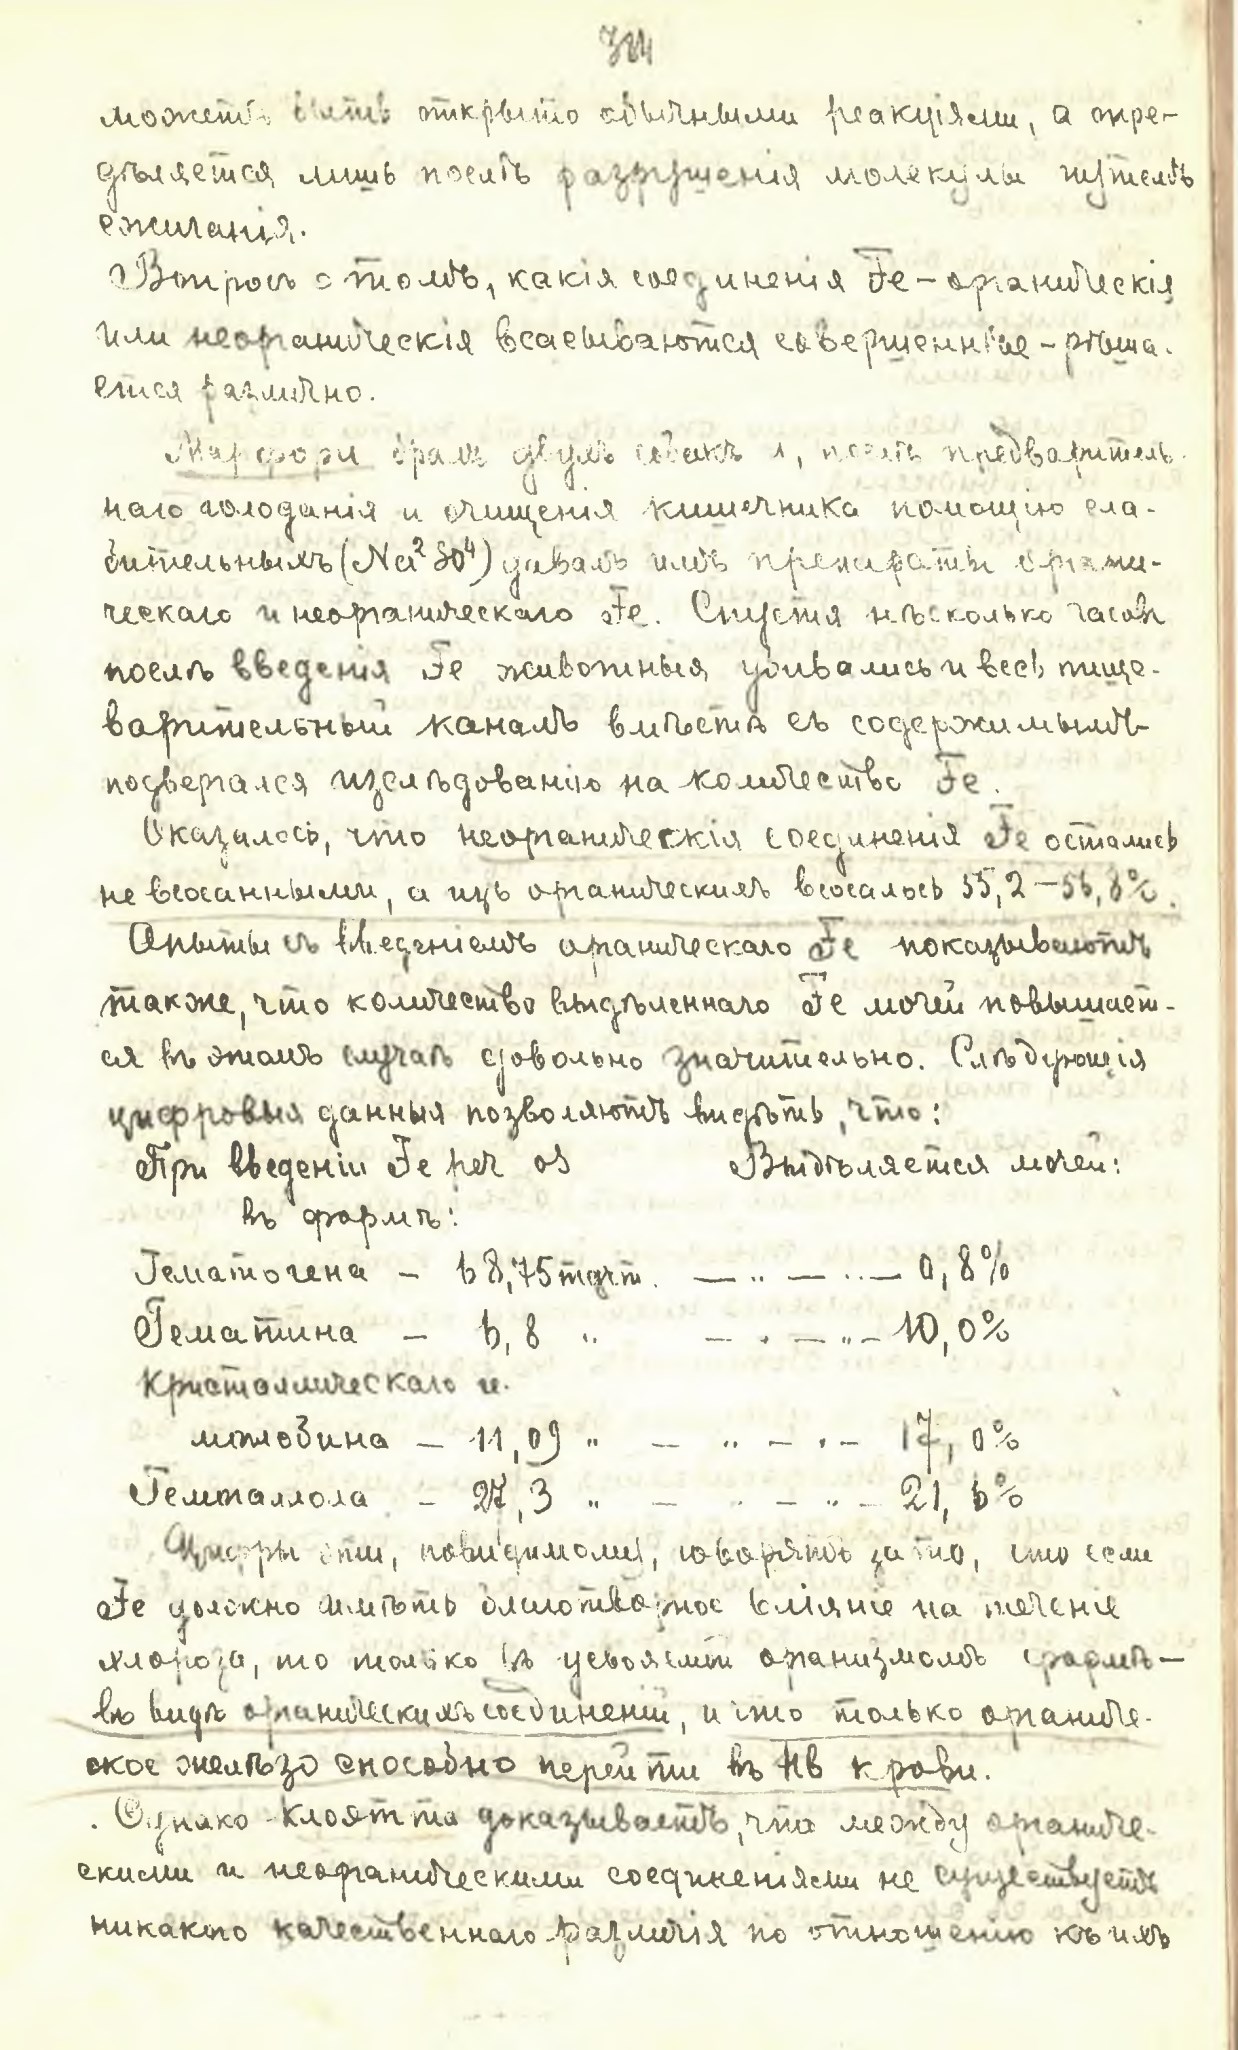 314
можетъ быть открыто обычными реакціями, а опре-
дѣляется лишь послѣ разрушенія молекулы путемъ
сжиганія.
Вопросъ о томъ, какія соединенія Fe – органическія
или неорганическія всасываются совершеннѣе – рѣша-
ется различно.
Марфори бралъ двухъ собакъ и, послѣ предваритель-
наго голоданія и очищенія кишечника помощію сла-
бительныхъ (Na² SO⁴) давалъ имъ препараты органи-
ческаго и неорганическаго Fe. Спустя нѣсколько часовъ
послѣ введенія Fe животныя убивались и весь пище-
варительный каналъ вмѣстѣ съ содержимымъ
подвергался изслѣдованію на количество Fe.
Оказалось, что неорганическія соединенія Fe остались
не всосанными, а изъ органическихъ всосалось 55,2 – 56,8%.
Опыты съ введеніемъ органическаго Fe показываютъ
также, что количество выдѣленнаго Fe мочей повышает-
ся въ этомъ случаѣ довольно значительно. Слѣдующія
цифровыя данныя позволяютъ видѣть, что:
При введеніи Fe per os Выдѣляется мочей:
въ формѣ:
Гематогена – 68,75 mgrm. — „ — „ — 0,8%
Гематина – 6,8 „ — „ — „ — 10,0%
Кристаллическаго ге-
моглобина – 11,09 „ — „ — „ — 17,0%
Гемогаллола – 27,3 „ — „ — „ — 21,6%
Цифры эти, повидимому, говорятъ за то, что если
Fe должно имѣть благотворное вліяніе на теченіе
хлороза, то только въ усвояемой организмомъ формѣ —
въ видѣ органическихъ соединеній, и что только органиче-
ское желѣзо способно перейти въ Нв крови.
Однако Клоэтта доказываетъ, что между органиче-
скими и неорганическими соединеніями не существуетъ
никакого качественнаго различія по отношенію къ ихъ